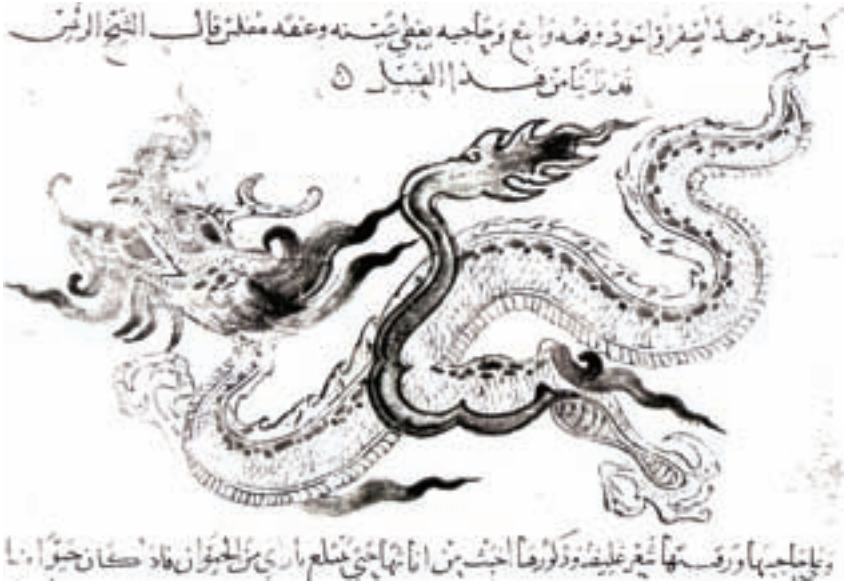 كبير جدا وجهه اصفر واسود وفمه واسع وحاجبه يغطى عينه وعنقه مفلس قال الشيخ الرئيس
قد راينا من هذا القبيل
حاجبها ورقبتها شعر غليظ وذكورها اخبث من اناثها حتى يبتلع باى من الحيوان فاذا كان حيوانا